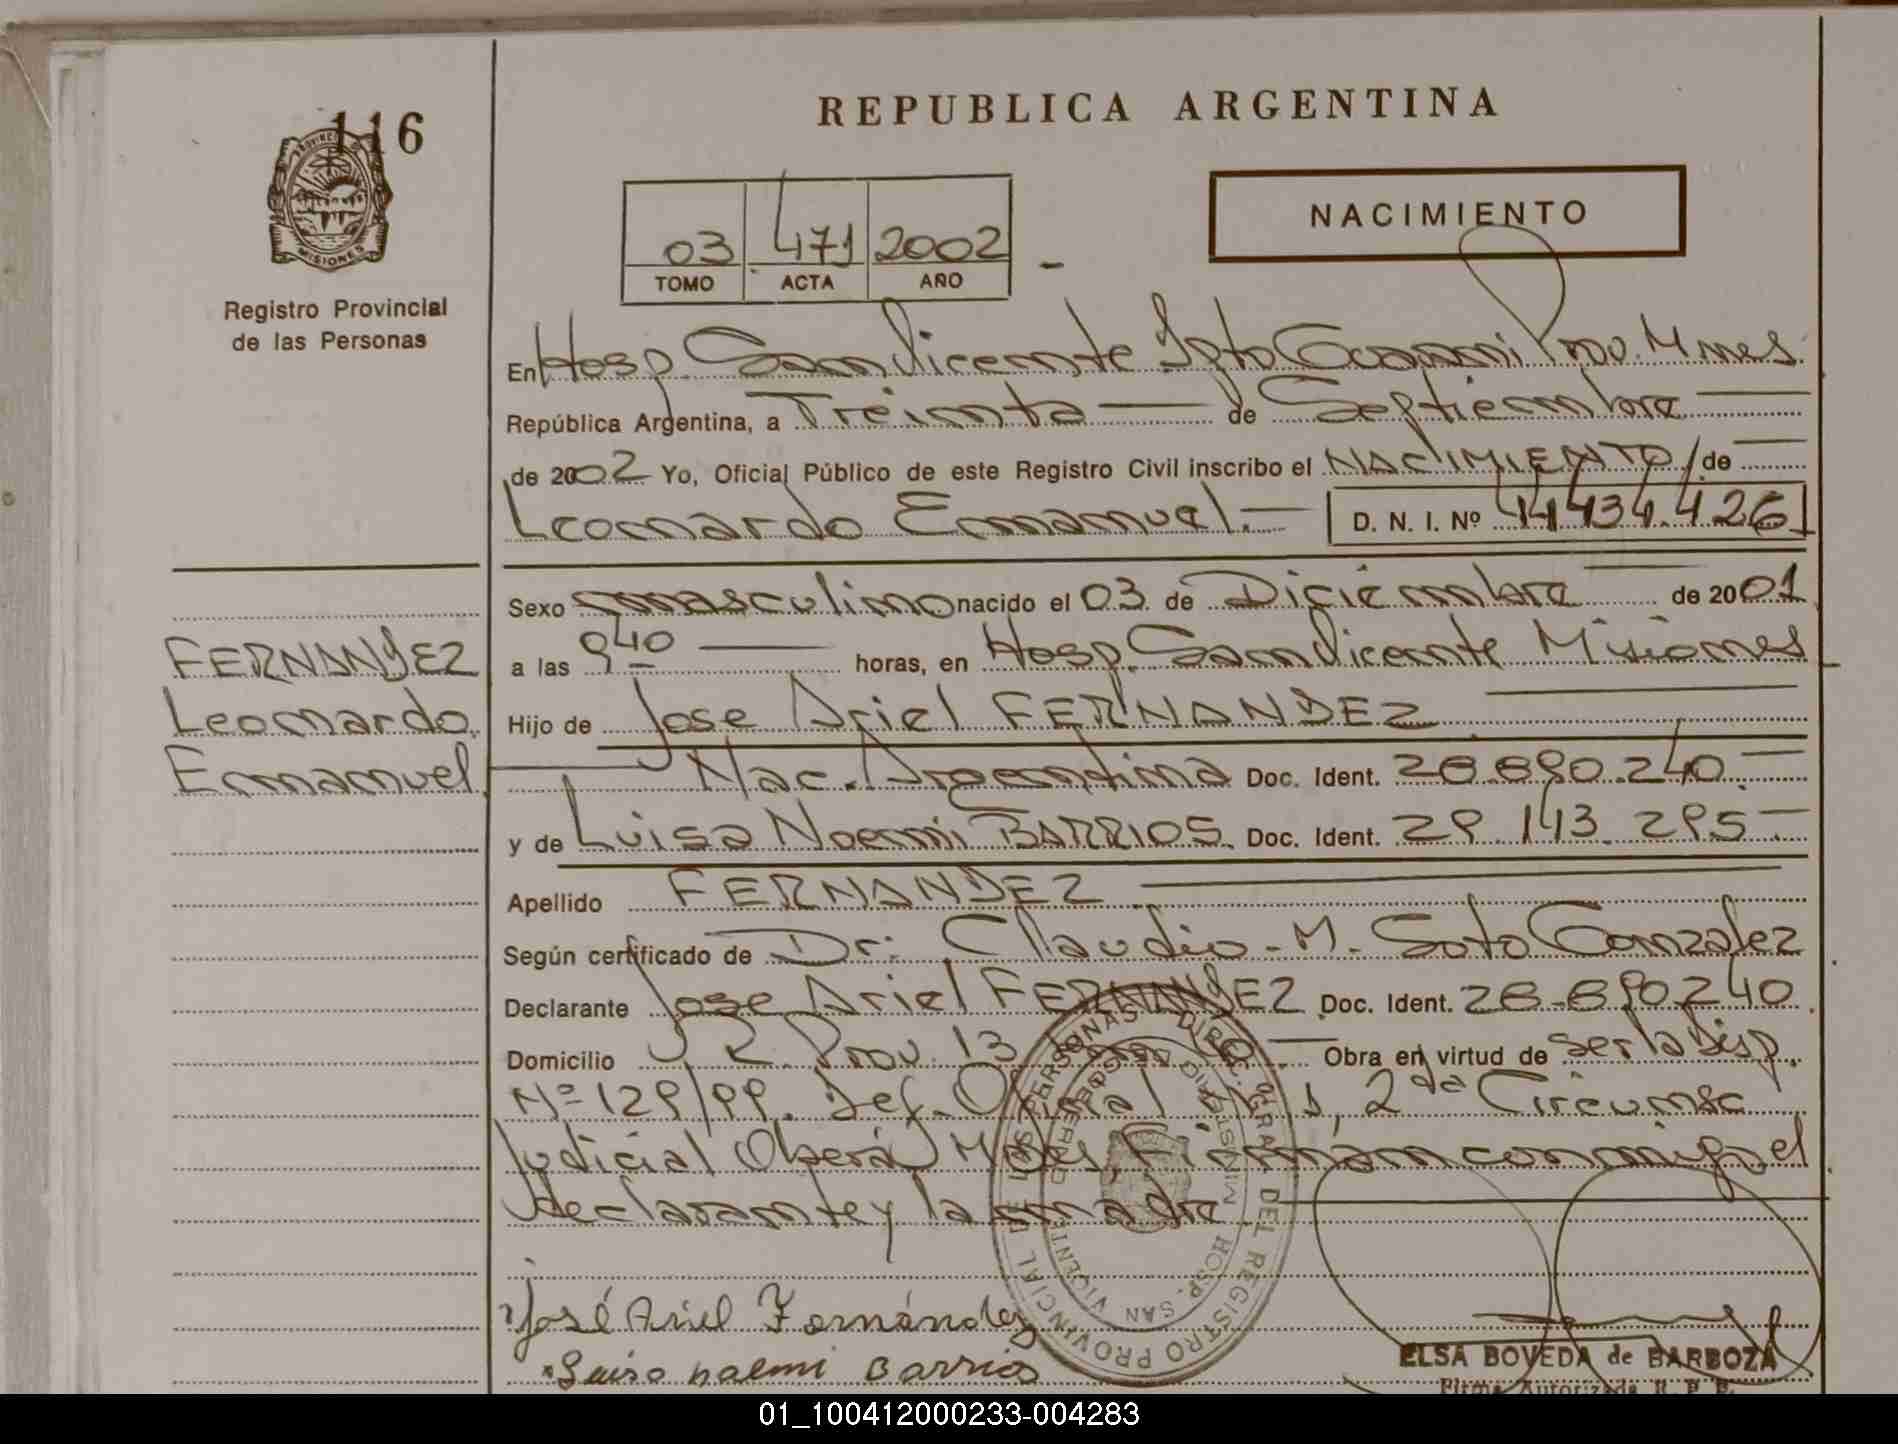 116
PROVINCIA
MISIONES
Registro Provincial
de las Personas
REPUBLICA ARGENTINA
NACIMIENTO
03 471 2002
TOMO ACTA AÑO
En Hosp. San Vicente Dpto Guarani Prov. Mnes.
República Argentina, a Treinta de Septiembre
de 2002 Yo, Oficial Público de este Registro Civil inscribo el NACIMIENTO de
Leonardo Emanuel.- D. N. I. Nº 44.434.426
Sexo masculino nacido el 03 de Diciembre de 2001
a las 9 40 horas, en Hosp. San Vicente Misiones
FERNANDEZ
Leonardo
Emanuel
Hijo de Jose Ariel FERNANDEZ
Nac. Argentina Doc. Ident. 28.890.240
y de Luisa Noemi BARRIOS. Doc. Ident. 29 143 295
Apellido FERNANDEZ
Según certificado de Dr: Claudio - M. Soto Gonzalez
Declarante Jose Ariel FERNANDEZ Doc. Ident. 28.890240
Domicilio R. Prov. 13 Obra en virtud de ser la Disp.
Nº 129/99. Def. Oficial Nº 1, 2da Circunsc
Judicial Oberá Mnes, Firman conmigo el
declarante y la madre
REGISTRO PROVINCIAL DE LAS PERSONAS
DIREC. GRAL. DEL
MINISTERIO DE GOBIERNO
HOSP. SAN VICENTE
José Ariel Fernández
Luisa noemi Barrios
ELSA BOVEDA de BARBOZA
Firma Autorizada R. P. P.
01_100412000233-004283